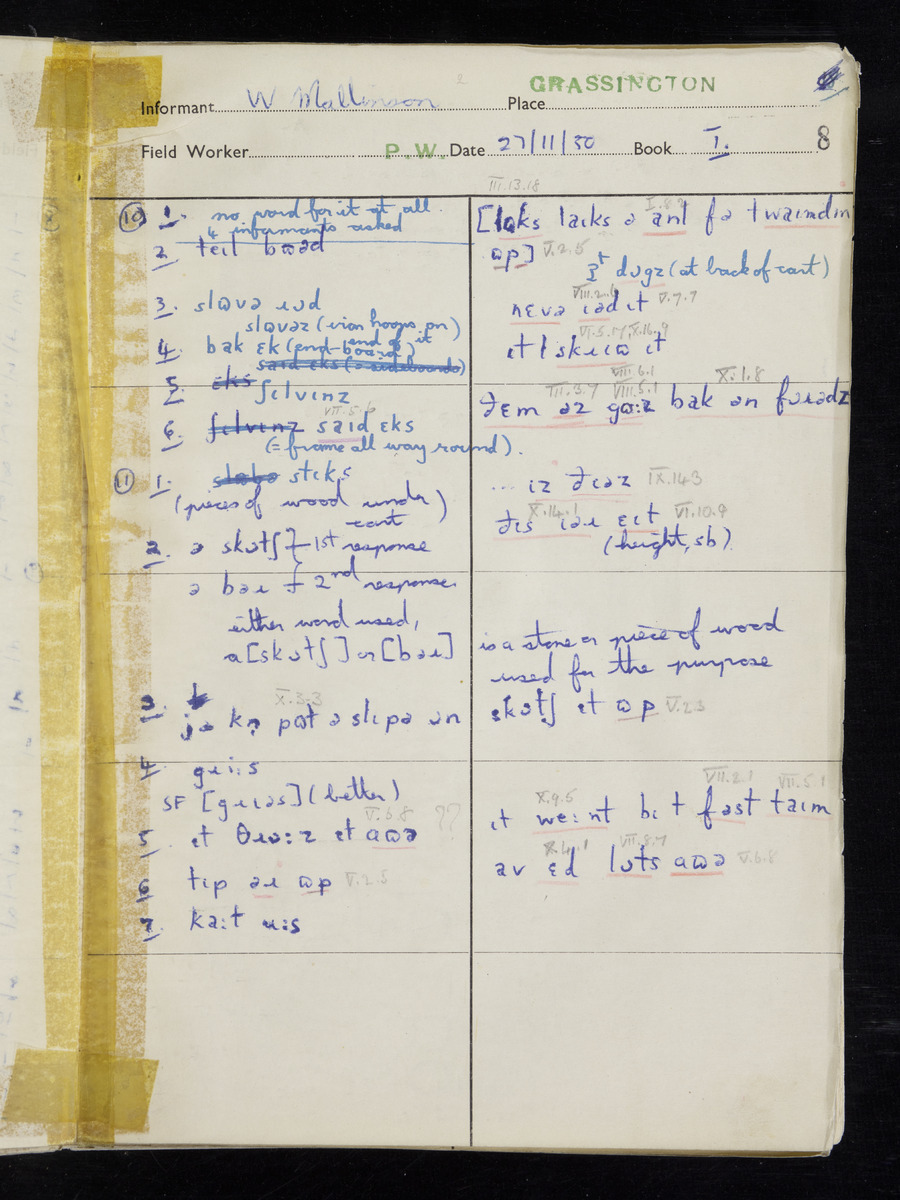 GRASSINGTON
Informant W Mallinson Place
Field Worker P.W. Date 27/11/50 Book I. 8
III.13.18
⑩ 1. no word for it at all.
4 informants asked
2. teɪl bʊəd
3. slɒvə ɹɒd
slɒvəz (iron hoops on)
4. bak ɛk (end-board) end of it
said ɛks (= sideboards)
5. ɛks ʃɛlvɪnz
VII.5.6
6. ʃɛlvɪnz said ɛks
(= frame all way round).
⑪ 1. stɛks
(pieces of wood under cart)
2. ə skɒtʃ } 1st response
ə baɹ } 2nd response
either word used,
a [skɒtʃ] or [baɹ]
X.3.3
3. pʊt ə slɪpə ɒn
4. gɹi:s
SF [gɹɪəs] (better)
V.6.8 ??
5. ɪt θɹɒ:z ɪt aʊə
6. tɪp əɹ ʊp V.2.5
7. ka:t ɹ:s
I.8.2
[lʊks laɪks ə ant fə twaɪndɪn
ʊp] V.2.5
dɒgz (at back of cart)
VIII.2.6
nɛvə ɪəd ɪt V.7.7
VI.5.17, X.16.9
ɪt l skɹɪʊ ɪt
VIII.6.1
III.3.7 VIII.5.1 X.1.8
ðɛm əz gʊ:z bak ən fɒɹədz
... ɪz ðɪəz IX.14.3
X.14.1
ðɪs ɪəɹ ɛɪt VI.10.9
(height, sb).
is a stone or piece of wood
used for the purpose
skɒtʃ ɪt ʊp V.2.3
X.9.5 VII.2.1 VII.5.1
ɪt we:nt bɪ t fast taɪm
X.4.1 VII.8.7
av ɛd lɒts aʊə V.6.8